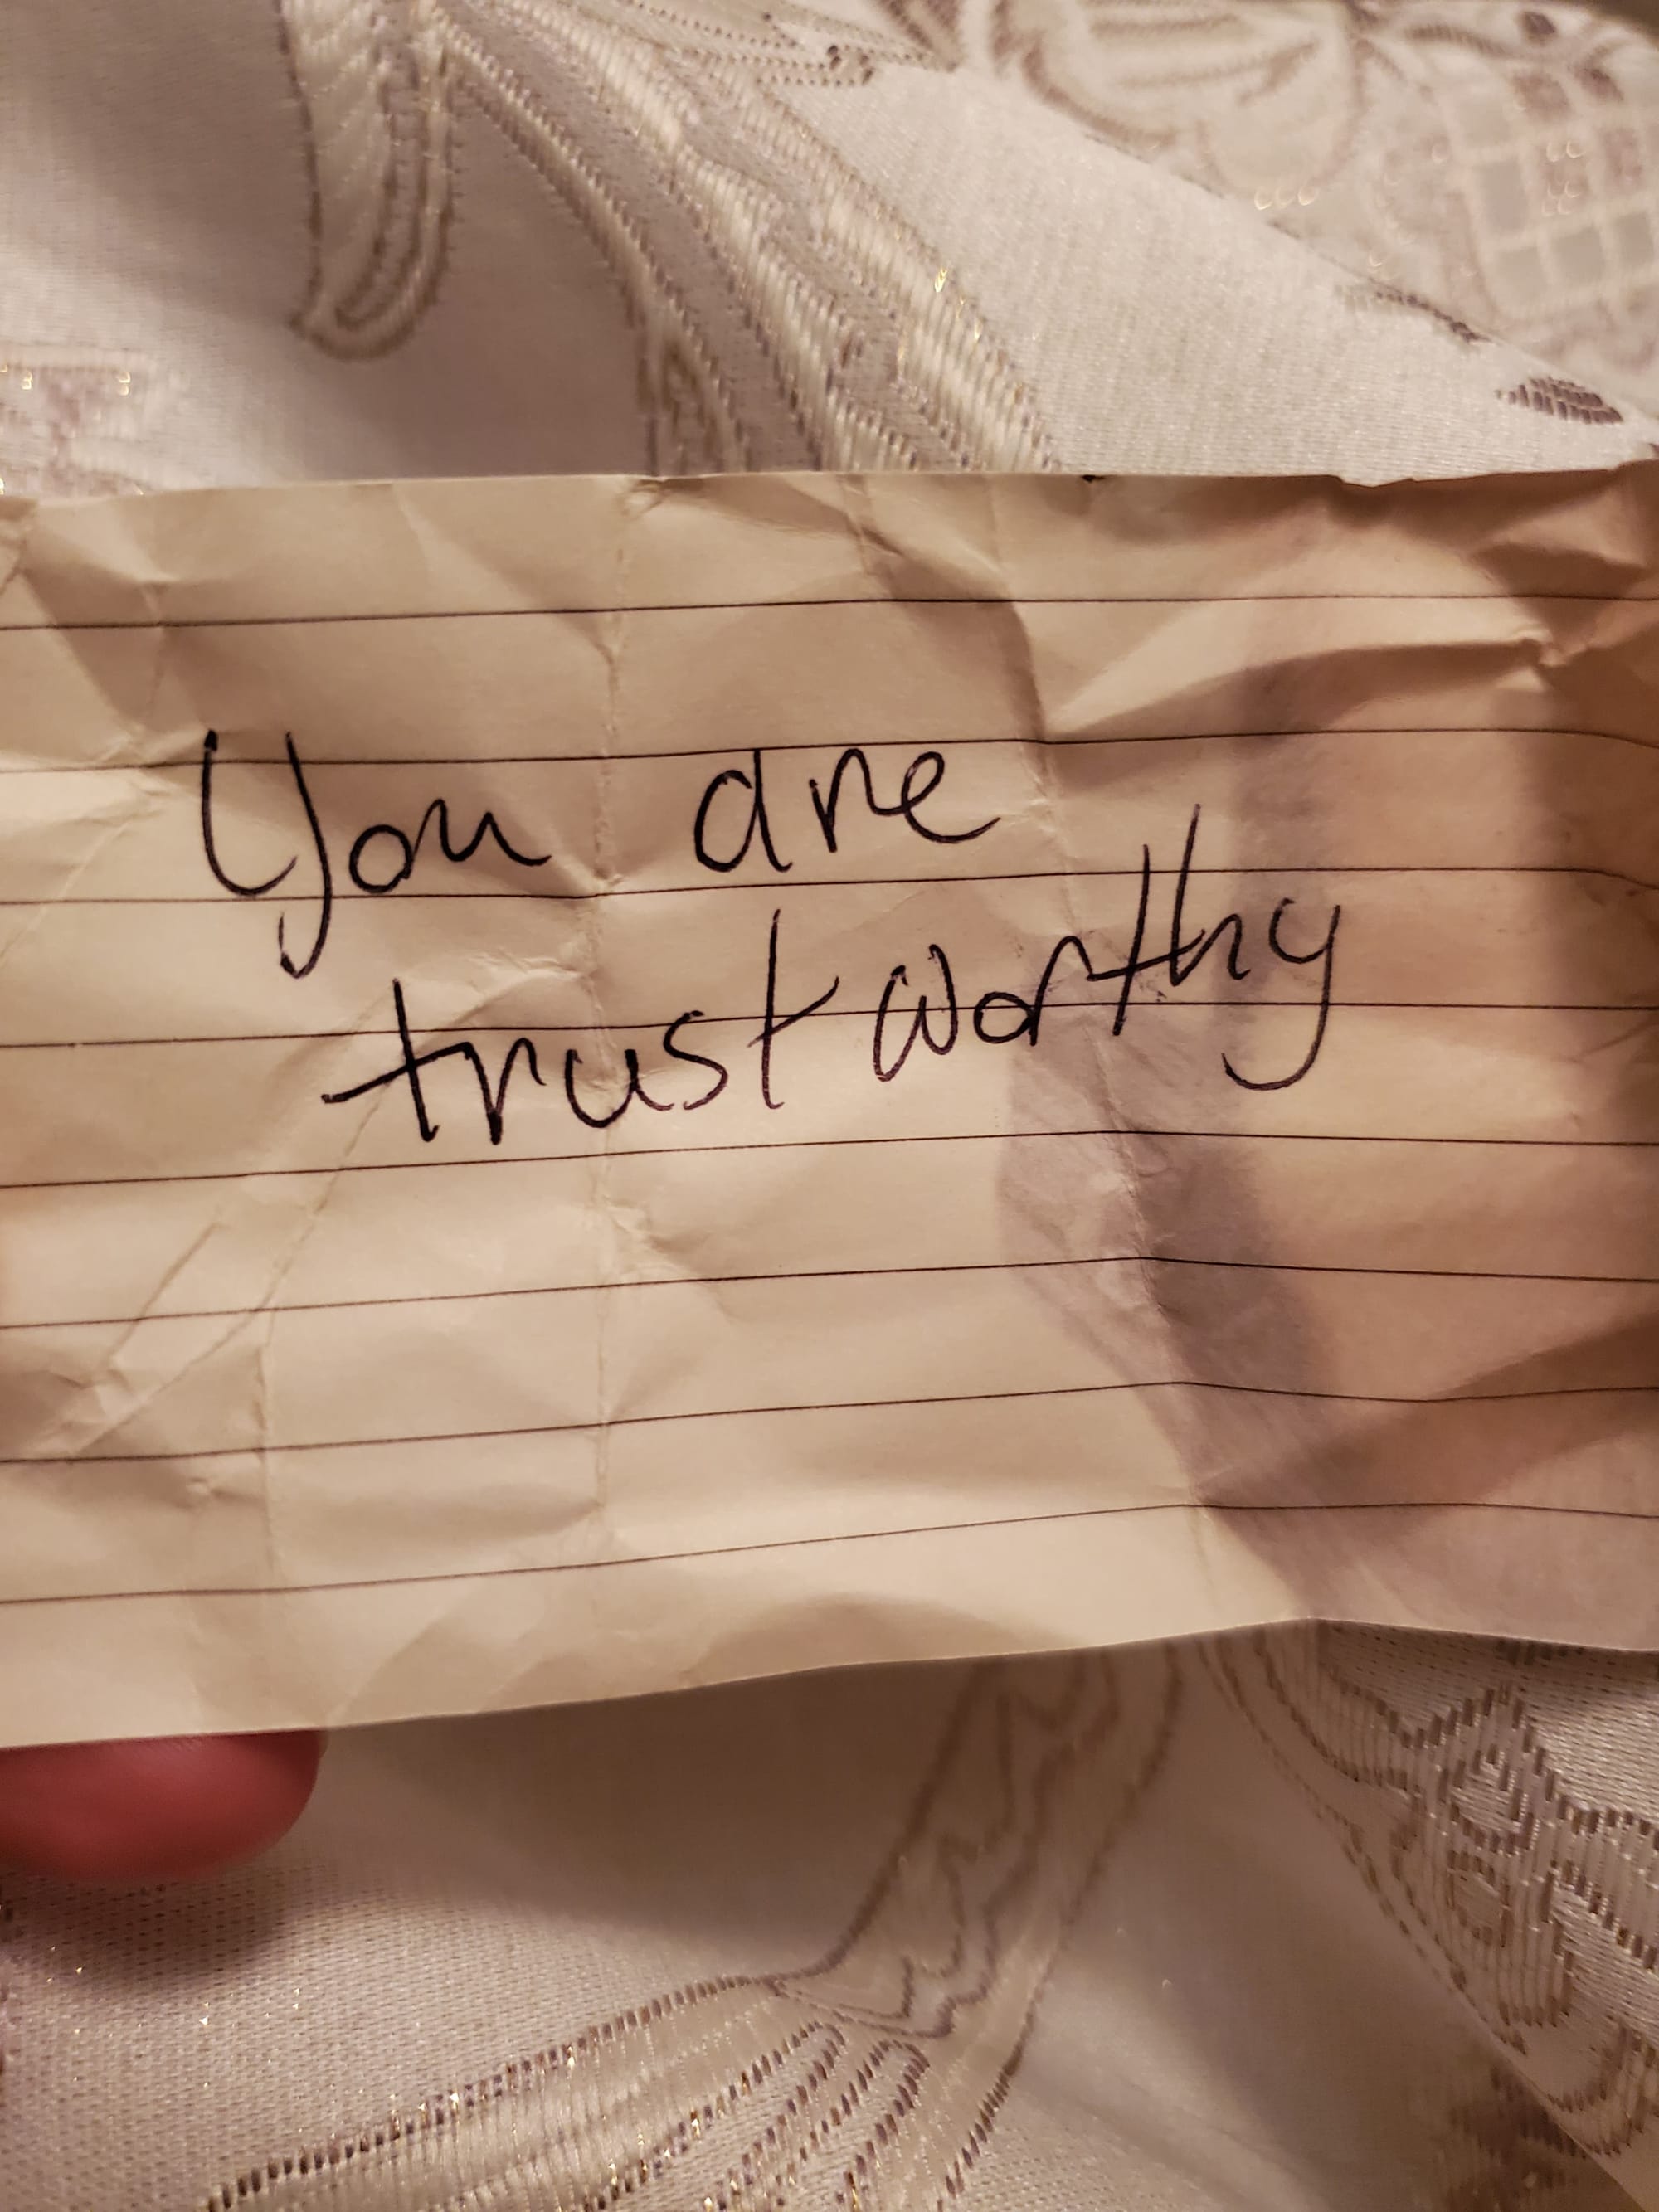 You are
trustworthy